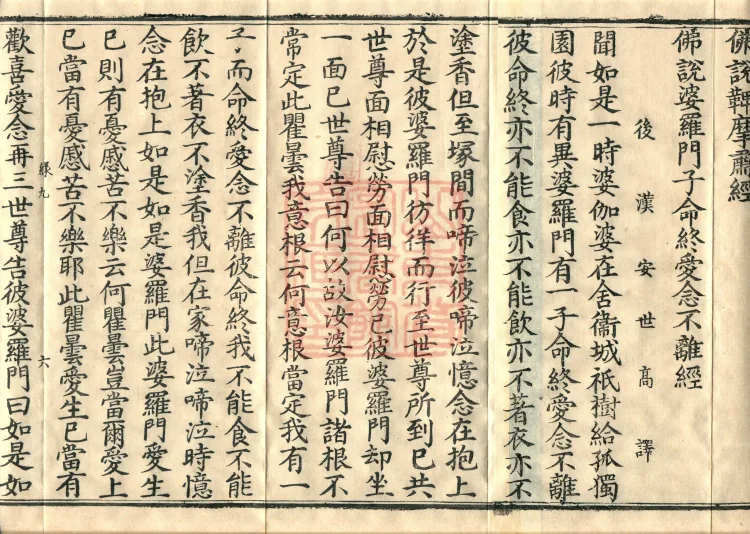 佛說鞞摩肅經
佛說婆羅門子命終愛念不離經
後漢安世高譯
聞如是一時婆伽婆在舍衞城祇樹給孤獨
園彼時有異婆羅門有一子命終愛念不離
彼命終亦不能食亦不能飲亦不著衣亦不
塗香但至塚間而啼泣彼啼泣憶念在抱上
於是彼婆羅門彷徉而行至世尊所到已共
世尊面相慰勞面相慰勞已彼婆羅門却坐
一面已世尊告曰何以故汝婆羅門諸根不
常定此瞿曇我意根云何意根當定我有一
子而命終愛念不離彼命終我不能食不能
飲不著衣不塗香我但在家啼泣啼泣時憶
念在抱上如是如是婆羅門此婆羅門愛生
已則有憂慼苦不樂云何瞿曇豈當爾愛上
已當有憂慼苦不樂耶此瞿曇愛生已當有
九 六
歡喜愛念再三世尊告彼婆羅門曰如是如